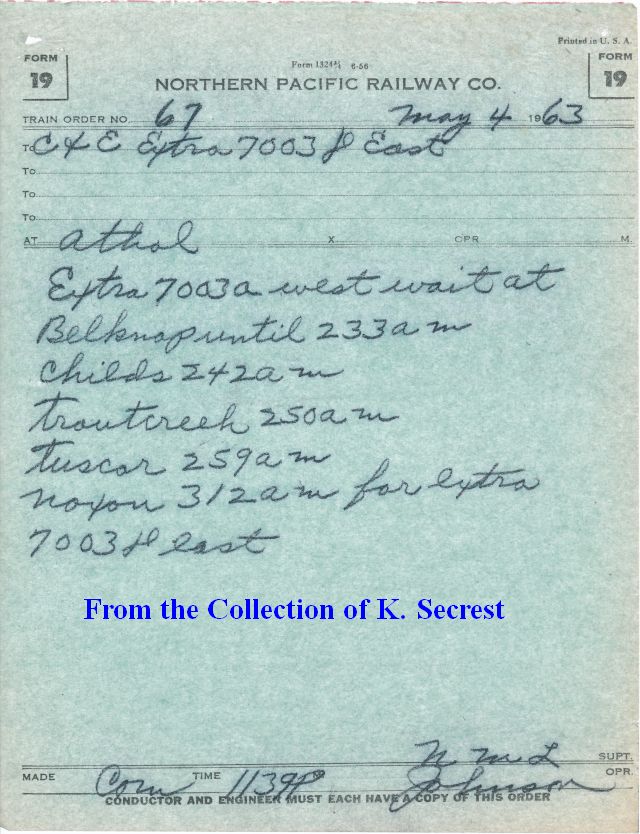 Printed in U. S. A.
FORM 19
Form 1324¾ 6-56
FORM 19
NORTHERN PACIFIC RAILWAY CO.
TRAIN ORDER NO. 67 May 4 1963
To C & E Extra 7003 D East
To
To
To
AT Athol X OPR M.
Extra 7003a west wait at
Belknap until 233am
Childs 242am
troutcreek 250am
tuscor 259am
noxon 312am for extra
7003 D east
From the Collection of K. Secrest
N M L SUPT.
MADE Com TIME 1139P Johnson OPR.
CONDUCTOR AND ENGINEER MUST EACH HAVE A COPY OF THIS ORDER